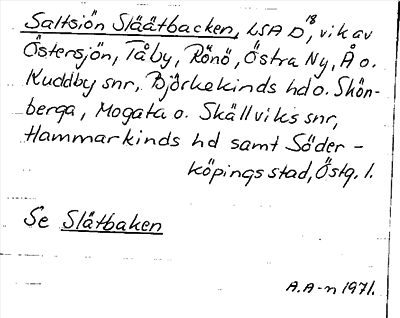 Saltsiön Slåätbacken, LSA D¹⁸, vik av
Östersjön, Tåby, Rönö, Östra Ny, Å o.
Kuddby snr, Björkekinds hd o. Skön-
berga, Mogata o. Skällviks snr,
Hammarkinds hd samt Söder-
köpings stad, Östg. l.
Se Slätbaken
A.A-n 1971.